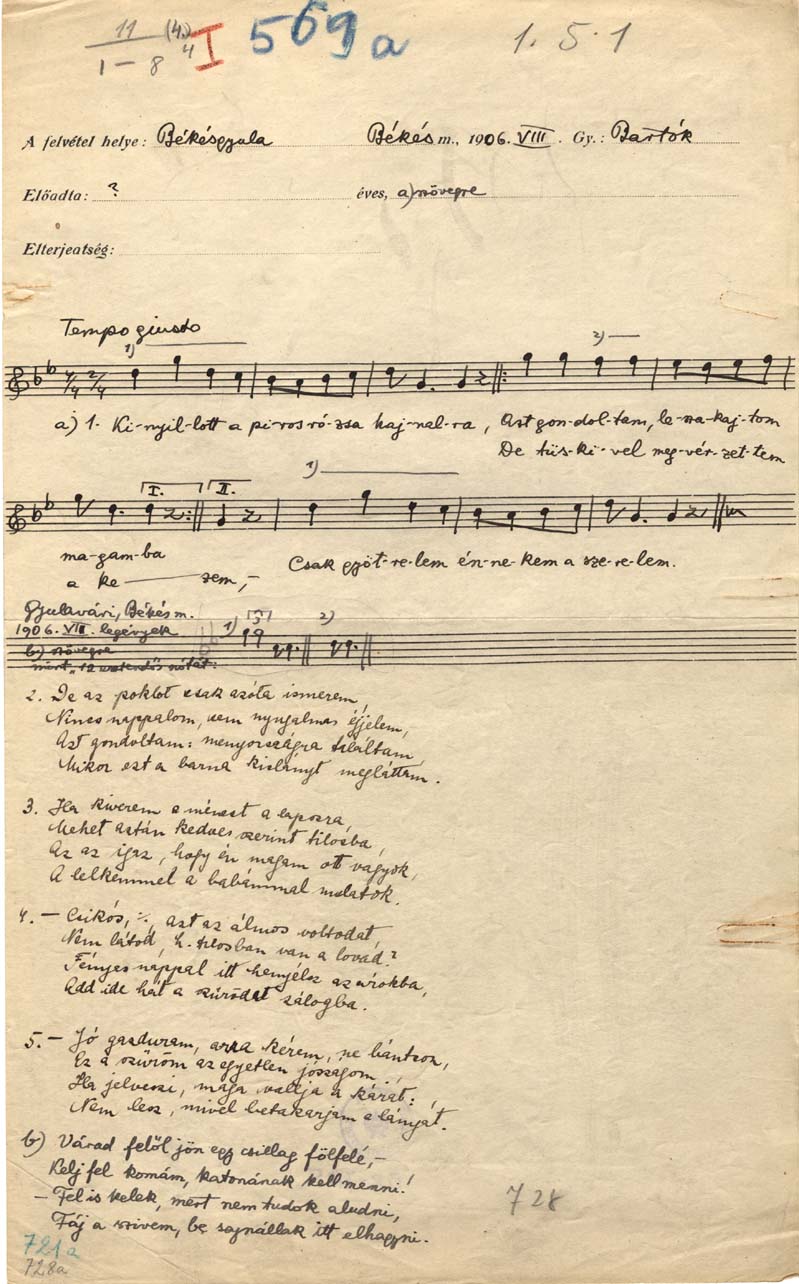 11 (4.)
1–8 4 I 569a 1.5.1
A felvétel helye: Békésgyula Békés m., 1906. VIII. Gy.: Bartók
Előadta: ? éves, a) szövegre
Elterjeatség:
Tempo giusto
1) 2)
4/4 2/4
a) 1. Ki-nyil-lott a pi-ros ró-zsa haj-nal-ra, Azt gon-dol-tam, le-sza-kaj-tom
De tüs-ki-vel meg-vér-zet-tem
I. II. 1)
ma-gam-ba Csak gyöt-re-lem én-ne-kem a sze-re-lem.
a ke— zem,–
Gyulavári, Békés m.
1906. VIII. legények 1) 3 2)
b) szövegre
mint „12 esztendős nótát:
2. De az poklot csak azóta ismerem,
Nincs nappalom, sem nyugalmas éjjelem,
Azt gondoltam: menyországra találtam,
Mikor ezt a barna kislányt megláttam.
3. Ha kiverem a ménest a laposra,
Mehet aztán kedve szerint tilosba,
Az az igaz, hogy én magam ott vagyok,
A lelkemmel a babámmal mulatok.
4. – Csikós, ·/. azt az álmos voltodat,
Nem látod, h. tilosban van a lovad?
Fényes nappal itt henyélsz az árokba,
Add ide hát a szűrödet zálogba.
5. – Jó gazduram, arra kérem, ne bántson,
Ez a szűröm az egyetlen jószágom.
Ha jelveszi, maga vallja a kárát:
Nem lesz, mivel betakarjam a lányát.
b) Várad felől jön egy csillag fölfelé,–
Kelj fel komám, katonának kell menni!
– Fel is kelek, mert nem tudok aludni,
Fáj a szivem, be sajnállak itt elhagyni.
728
721a
728a